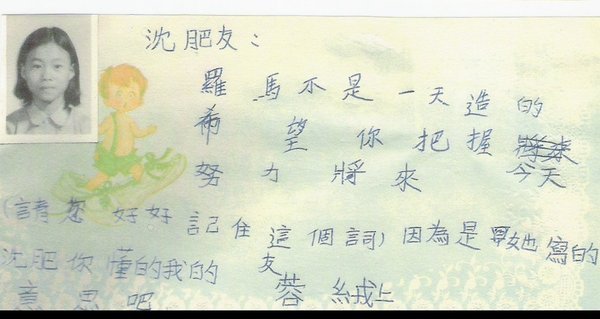 沈肥友：
羅馬不是一天造的
希望你把握今天
努力將來
(請您好好記住這個詞)因為是她寫的
沈肥你懂的我的意思吧
友
蓉 上